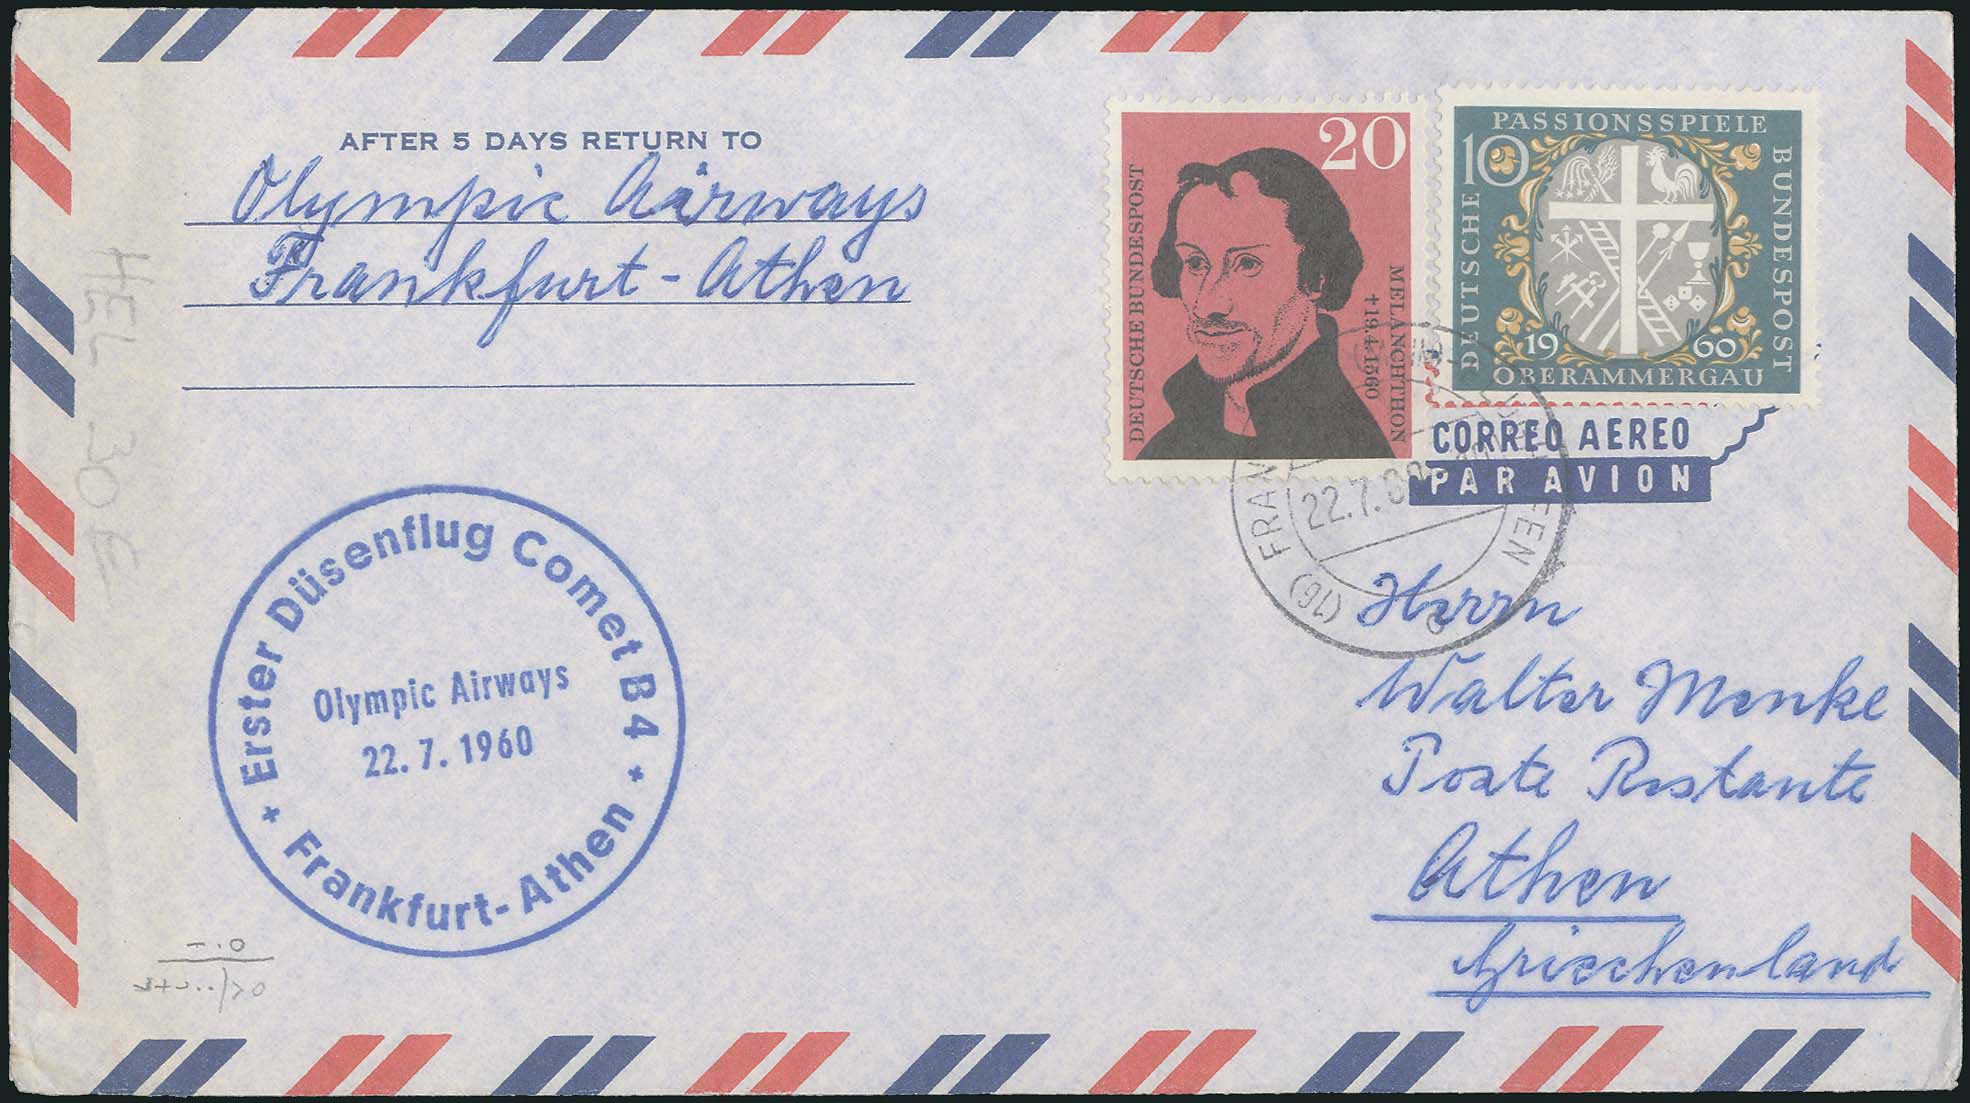 AFTER 5 DAYS RETURN TO
Olympic Airways
Frankfurt-Athen
20
DEUTSCHE BUNDESPOST
MELANCHTHON
†19.4.1560
PASSIONSSPIELE
10
DEUTSCHE
BUNDESPOST
1960
OBERAMMERGAU
CORREO AEREO
PAR AVION
(16) FRAN
22.7.60
FEN
c
HEL 30E
Erster Düsenflug Comet B4
Olympic Airways
22.7.1960
+ Frankfurt-Athen *
Herrn
Walter Menke
Poste Restante
Athen
Griechenland